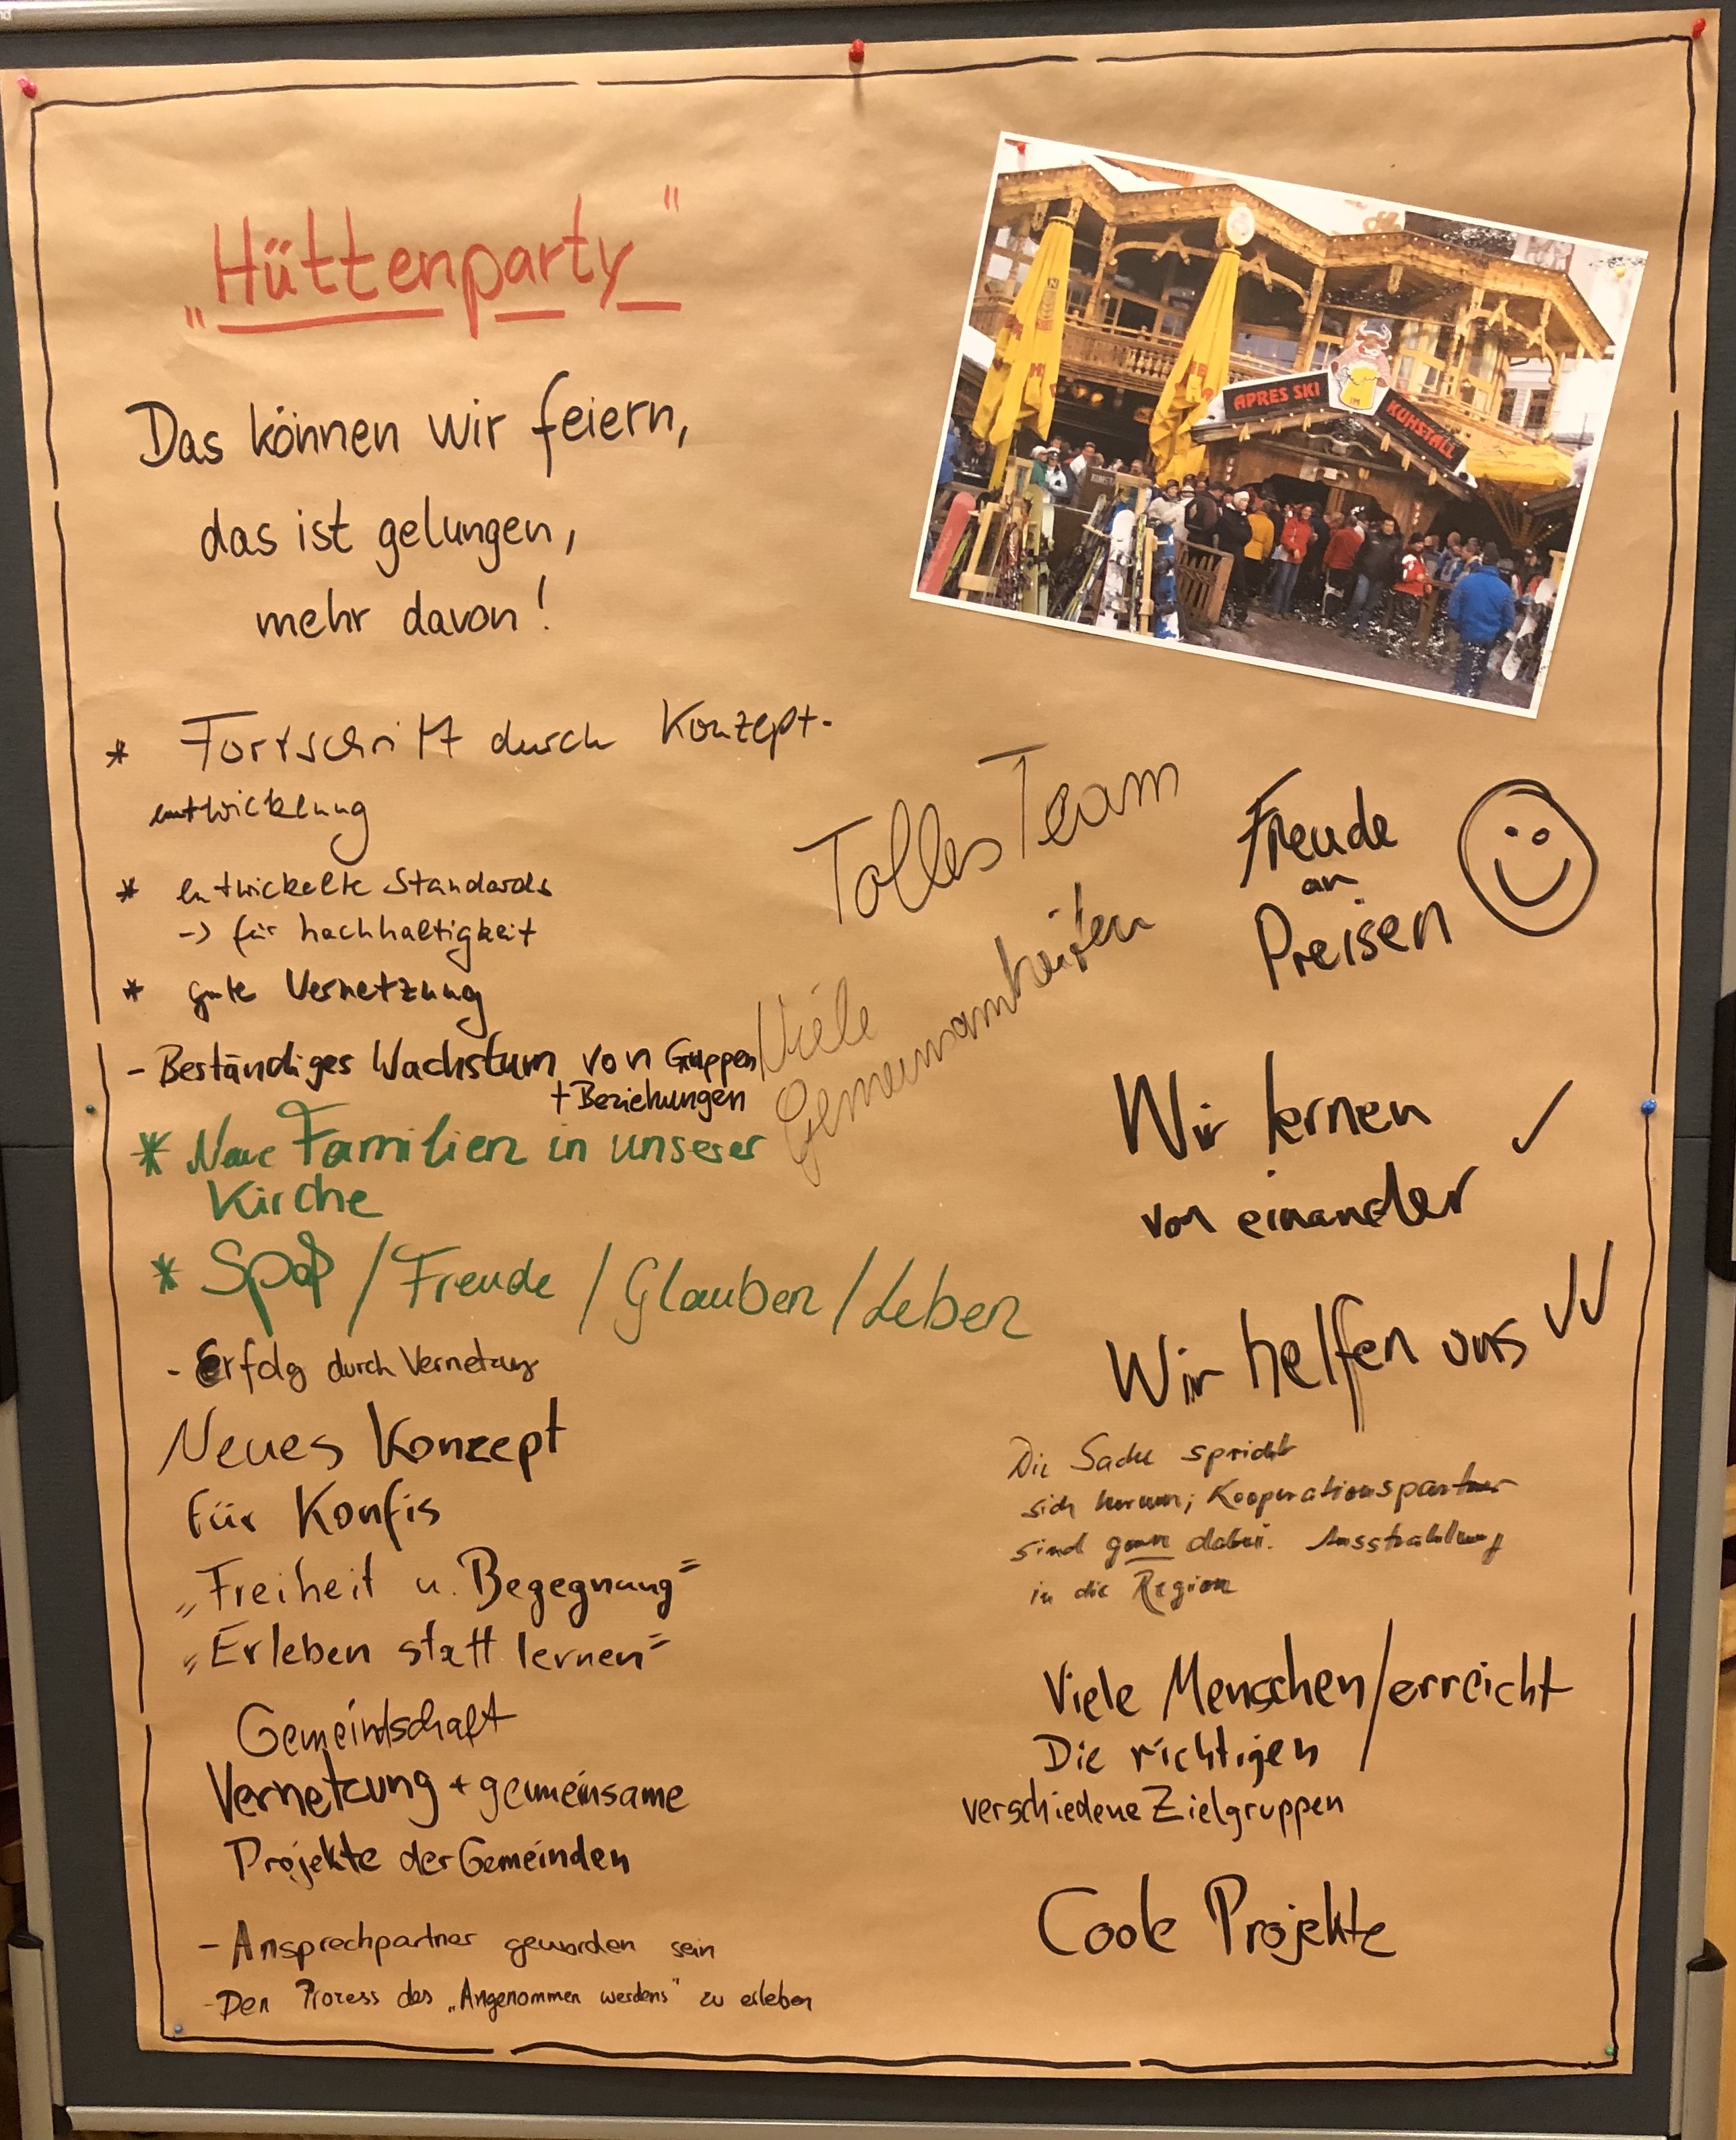 „Hüttenparty"
Das können wir feiern,
das ist gelungen,
mehr davon!
APRES SKI
KUHSTALL
* Fortschritt durch Konzept-
entwicklung
* entwickelte Standards
-> für Nachhaltigkeit
* gute Vernetzung
- Beständiges Wachstum von Gruppen
+ Beziehungen
* Neue Familien in unserer
Kirche
* Spaß / Freude / Glauben / Leben
- Erfolg durch Vernetzung
Neues Konzept
für Konfis
„Freiheit u. Begegnung"
„Erleben statt lernen"
Gemeindschaft
Vernetzung + gemeinsame
Projekte der Gemeinden
- Ansprechpartner geworden sein
- Den Prozess des „Angenommen werdens" zu erleben
Tolles Team
Viele
Gemeinsamkeiten
Freude
an
Preisen
Wir lernen
von einander ✓
Wir helfen uns ✓✓
Die Sache spricht
sich herum; Kooperationspartner
sind gern dabei. Ausstrahlung
in die Region
Viele Menschen / erreicht
Die richtigen
verschiedene Zielgruppen
Coole Projekte